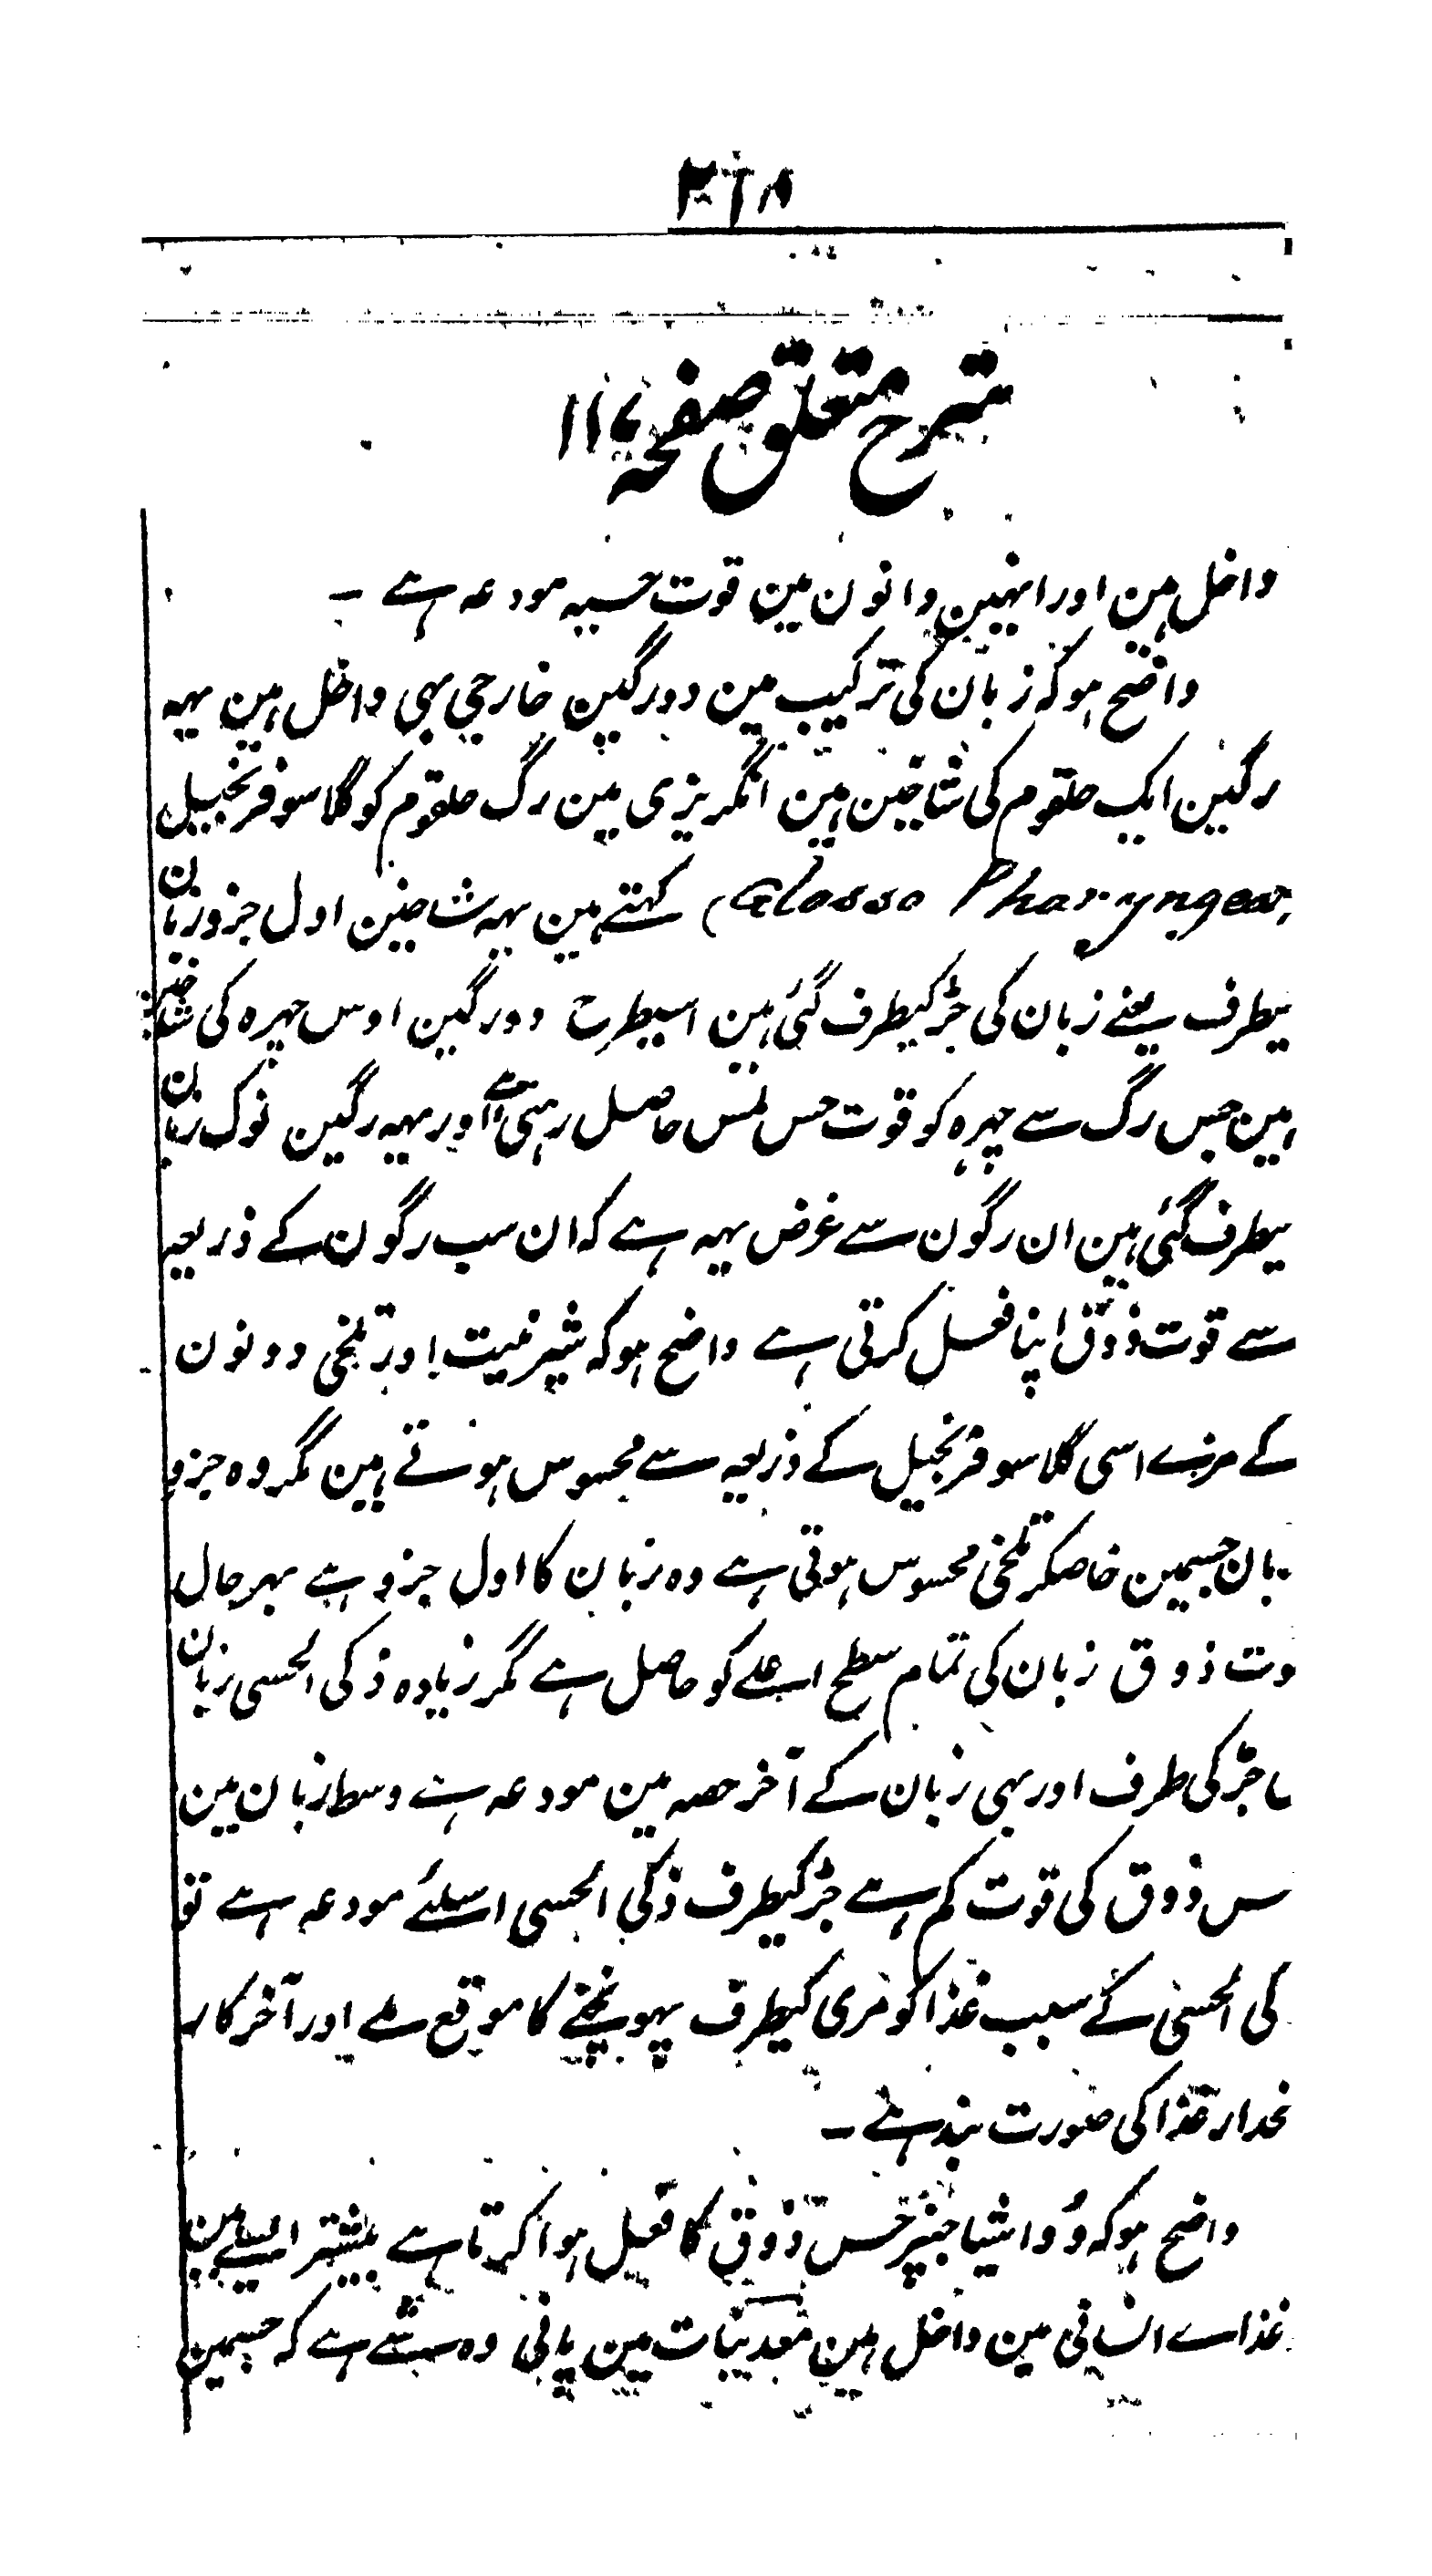 ۲۱۸
شرح متعلق صفحہ ۱۱
داخل ہین اور انہین دانون مین قوت حسیہ مودعہ ہے ۔
واضح ہو کہ زبان کی ترکیب مین دو رگین خارجی بہی داخل ہین یہہ
رگین ایک حلقوم کی شاخین ہین انگریزی مین رگ حلقوم کو گلاسوفرنجیل
(Glosso Pharyngeal کہتے ہین یہہ شاخین اول جزو زبان
یطرف یعنے زبان کی جڑ کیطرف گئی ہین اسیطرح دو رگین اوس چہرہ کی شاخین
ہین جس رگ سے چہرہ کو قوت حس لمس حاصل رہتی ہے اور یہہ رگین نوک زبان
یطرف گئی ہین ان رگون سے غرض یہہ ہے کہ ان سب رگون کے ذریعہ
سے قوت ذوق اپنا فعل کرتی ہے واضح ہو کہ شیرنیت اور تلخی دونون
کے مزے اسی گلاسوفرنجیل کے ذریعہ سے محسوس ہوتے ہین مگر وہ جزو
بان جسمین خاصکر تلخی محسوس ہوتی ہے وہ زبان کا اول جزو ہے بہر حال
وت ذوق زبان کی تمام سطح اعلے کو حاصل ہے مگر زیادہ ذکی الحسی زبان
جڑ کی طرف اور بہی زبان کے آخر حصہ مین مودعہ ہے وسط زبان مین
س ذوق کی قوت کم ہے جڑ کیطرف ذکی الحسی اسلئے مودعہ ہے تو
کی الحسی کے سبب غذا کو مری کیطرف پہونچنے کا موقع ملے اور آخر کار
غذا کی صورت بند ہے ۔
واضح ہو کہ وُو اشیا جنپر حس ذوق کا فعل ہوا کرتا ہے بیشتر ایسے ہین
غذاے انسانی مین داخل ہین معدنیات مین پانی وہ شے ہے کہ جسمین